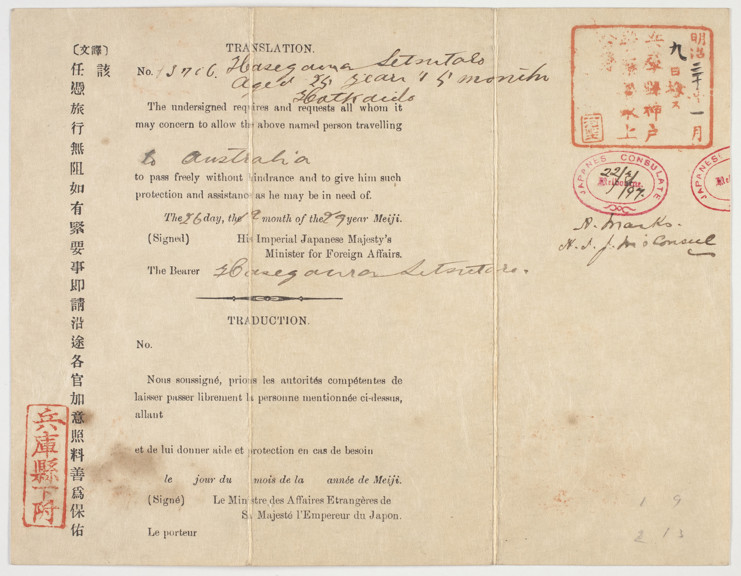 〔譯文〕
該
任憑旅行無阻如有緊要事卽請沿途各官加意照料善爲保佑
兵庫縣下附
TRANSLATION.
No. 13716. Hasegawa Setsutalo
Aged 25 year " 5 month
Hotkaido
The undersigned requires and requests all whom it
may concern to allow the above named person travelling
to Australia
to pass freely without hindrance and to give him such
protection and assistance as he may be in need of.
The 26 day, the 12 month of the 29 year Meiji.
(Signed) His Imperial Japanese Majesty's
Minister for Foreign Affairs.
The Bearer Hasegawa Setsutaro.
TRADUCTION.
No.
Nous soussigné, prions les autorités compétentes de
laisser passer librement la personne mentionnée ci-dessus,
allant
et de lui donner aide et protection en cas de besoin
le jour du mois de la année de Meiji.
(Signé) Le Ministre des Affaires Etrangères de
Sa Majesté l'Empereur du Japon.
Le porteur
明治三十年一月
九日
兵庫縣神戸
水上
JAPANES CONSULATE
Melbourne
22/3/97.
JAPANES
A. Marks.
H. I. J. M's Consul
19
213